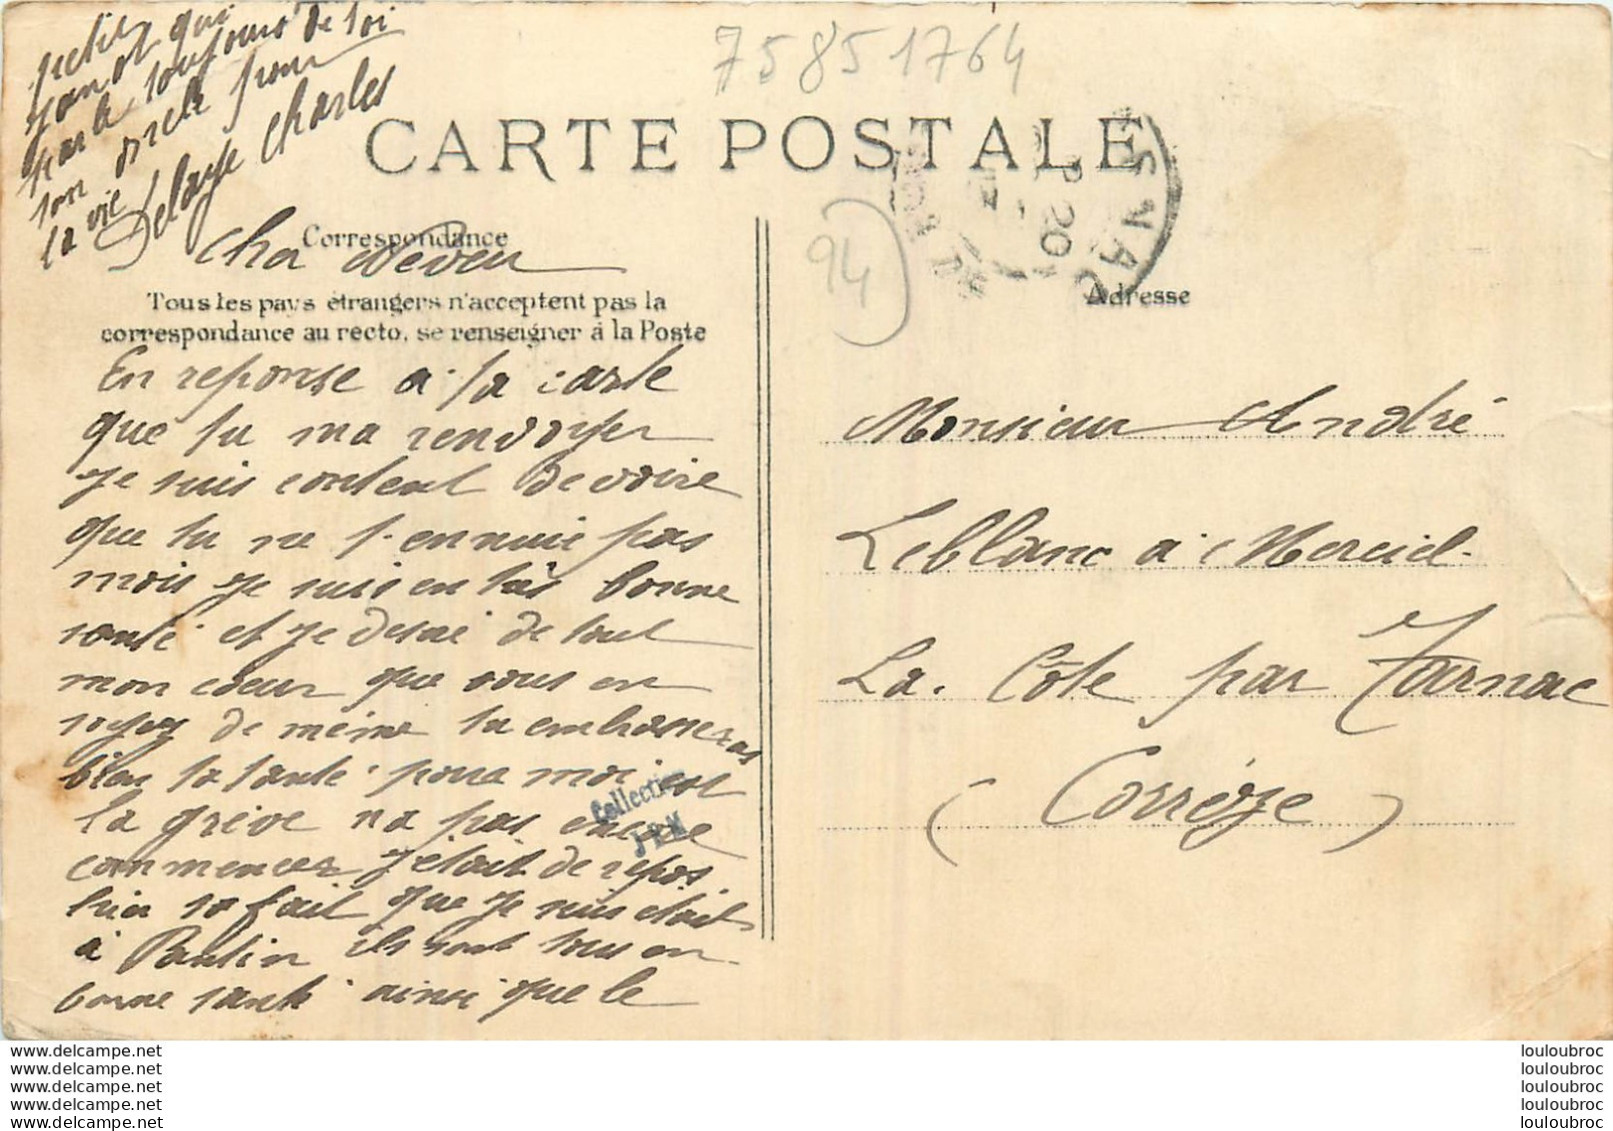 75851764
CARTE POSTALE
94
Correspondance
Tous les pays étrangers n'acceptent pas la
correspondance au recto, se renseigner à la Poste
Adresse
Cher Neveu
En reponse a ta carte
que tu ma renvoyer
je suis content de voire
que tu ne t-ennuie pas
mois je suis en très bonne
santé et je desire de tout
mon coeur que vous en
soyez de même tu embrasseras
bien ta tante pour moi
la grève na pas encore
commencer j'etait de repos
hier sa fait que je suis etait
à Pantin ils sont tous en
bonne santé ainsi que le
petit
qui
parle toujours de toi
ton oncle pour
la vie
Delaye Charles
Collection
J-B-M
Monsieur André
Leblanc à Merciel
La Côte par Tarnac
( Corrèze )
www.delcampe.net
www.delcampe.net
www.delcampe.net
www.delcampe.net
www.delcampe.net
louloubroc
louloubroc
louloubroc
louloubroc
louloubroc